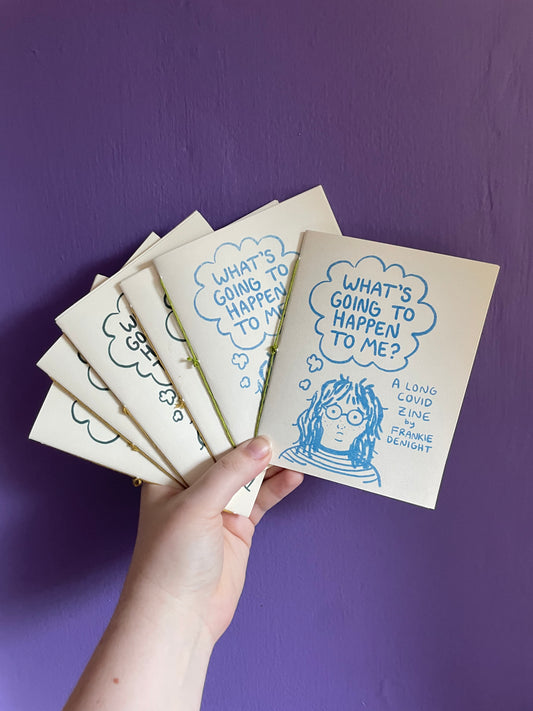 WHAT'S
GOING TO
HAPPEN
TO ME?
A LONG
COVID
ZINE
by
FRANKIE
DENIGHT
WHAT'S
GOING TO
HAPPEN
TO ME